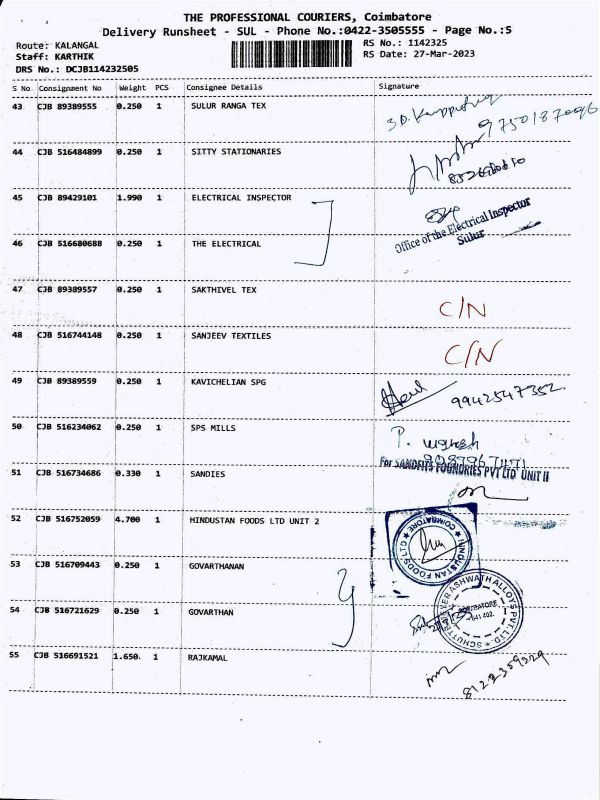 THE PROFESSIONAL COURIERS, Coimbatore
Delivery Runsheet - SUL - Phone No.:0422-3505555 - Page No.:5
Route: KALANGAL
Staff: KARTHIK
DRS No.: DCJB114232505
RS No.: 1142325
RS Date: 27-Mar-2023
S No Consignment No Weight PCS Consignee Details Signature
43 CJB 89389555 0.250 1 SULUR RANGA TEX
9750187096
44 CJB 516484899 0.250 1 SITTY STATIONARIES
45 CJB 89429101 1.990 1 ELECTRICAL INSPECTOR
Office of the Electrical Inspector
Sulur
46 CJB 516680688 0.250 1 THE ELECTRICAL
47 CJB 89389557 0.250 1 SAKTHIVEL TEX
C/N
48 CJB 516744148 0.250 1 SANJEEV TEXTILES
C/N
49 CJB 89389559 0.250 1 KAVICHELIAN SPG
9942547352
50 CJB 516234062 0.250 1 SPS MILLS
P.
For SANDFITS FOUNDRIES PVT LTD UNIT II
51 CJB 516734686 0.330 1 SANDIES
52 CJB 516752059 4.700 1 HINDUSTAN FOODS LTD UNIT 2
HINDUSTAN FOODS LTD ★ COIMBATORE ★
53 CJB 516709443 0.250 1 GOVARTHANAN
54 CJB 516721629 0.250 1 GOVARTHAN
ASHWATH ALLOYS PVT. LTD.
641 402.
55 CJB 516691521 1.650. 1 RAJKAMAL
8122359229